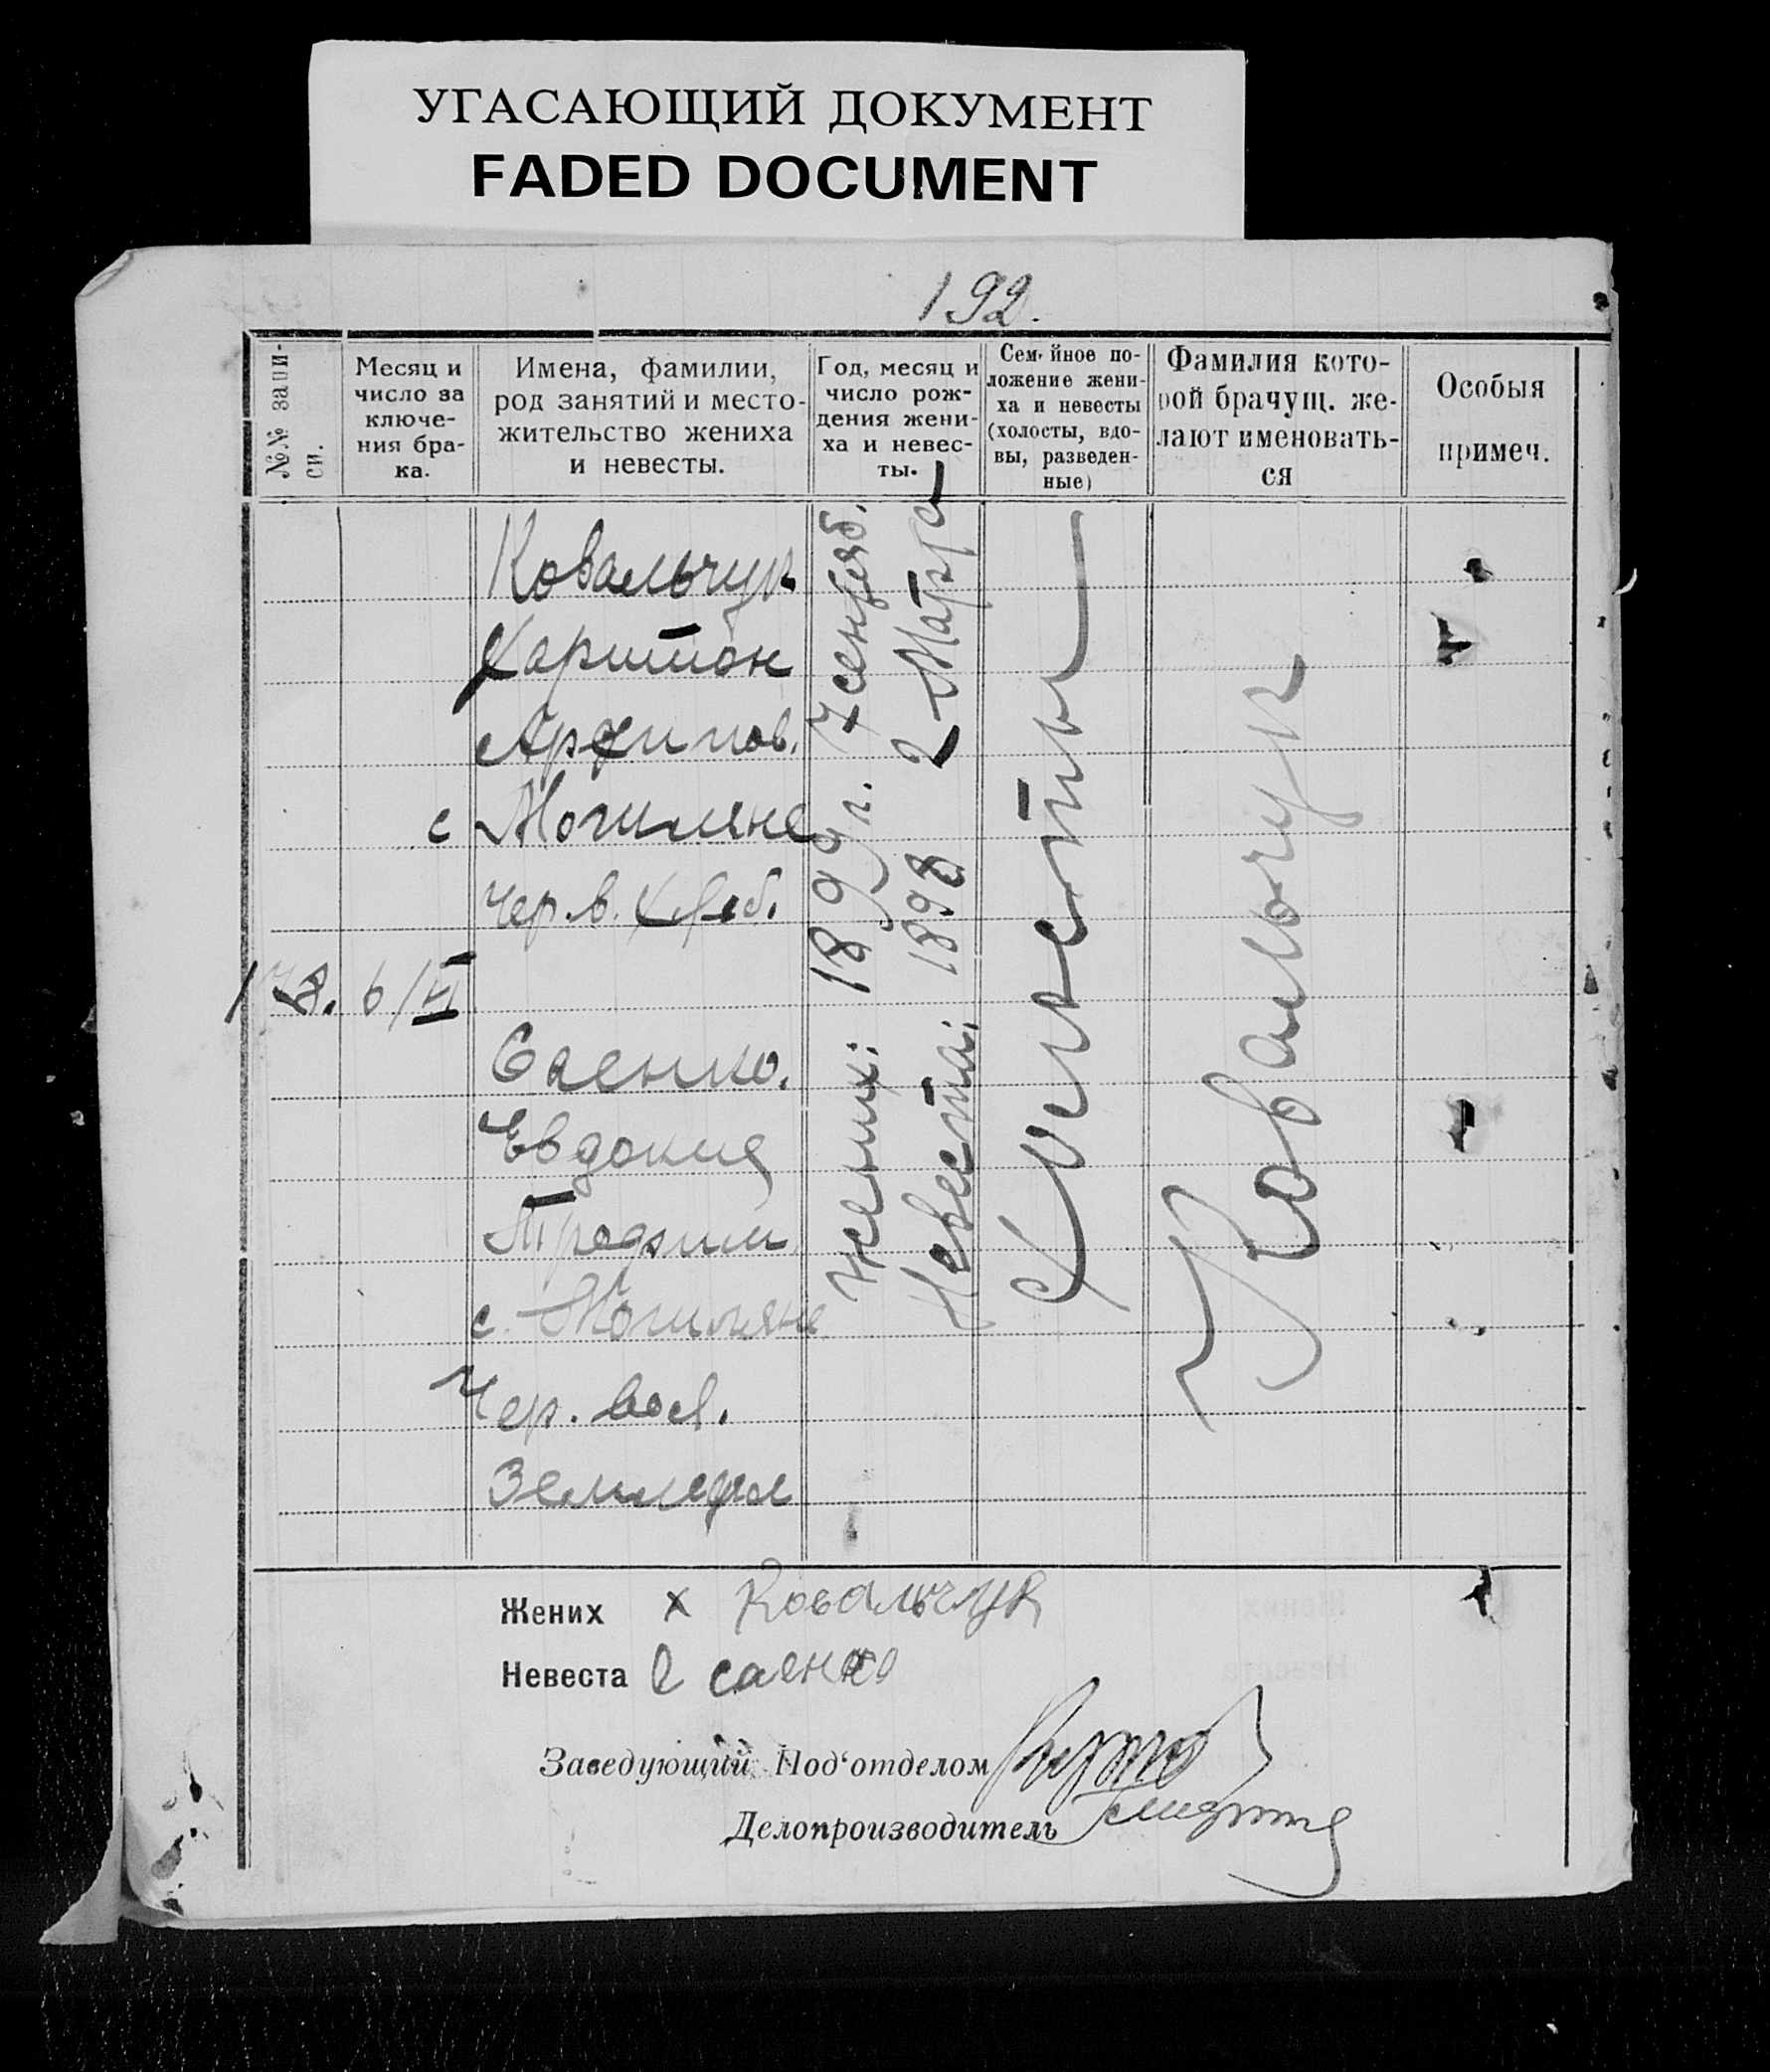 УГАСАЮЩИЙ ДОКУМЕНТ
FADED DOCUMENT
192.
№№ запи-
си.
Месяц и
число за
ключе-
ния бра-
ка.
Имена, фамилии,
род занятий и место-
жительство жениха
и невесты.
Год, месяц и
число рож-
дения жени-
ха и невес-
ты.
Семейное по-
ложение жени-
ха и невесты
(холосты, вдо-
вы, разведен-
ные)
Фамилия кото-
рой брачущ. же-
лают именовать-
ся
Особыя
примеч.
Ковальчук
Харитон
Архипов.
с Могиляне
Чер. в.
6/II
Саенко.
Евдокия
с. Могиляне
Чер. вол.
Жених: 1899 г. 7 сентяб.
Невеста: 1898 2 Марта
Холосты
Ковальчук
Жених х Ковальчук
Невеста е саенко
Заведующий Под'отделом
Делопроизводитель